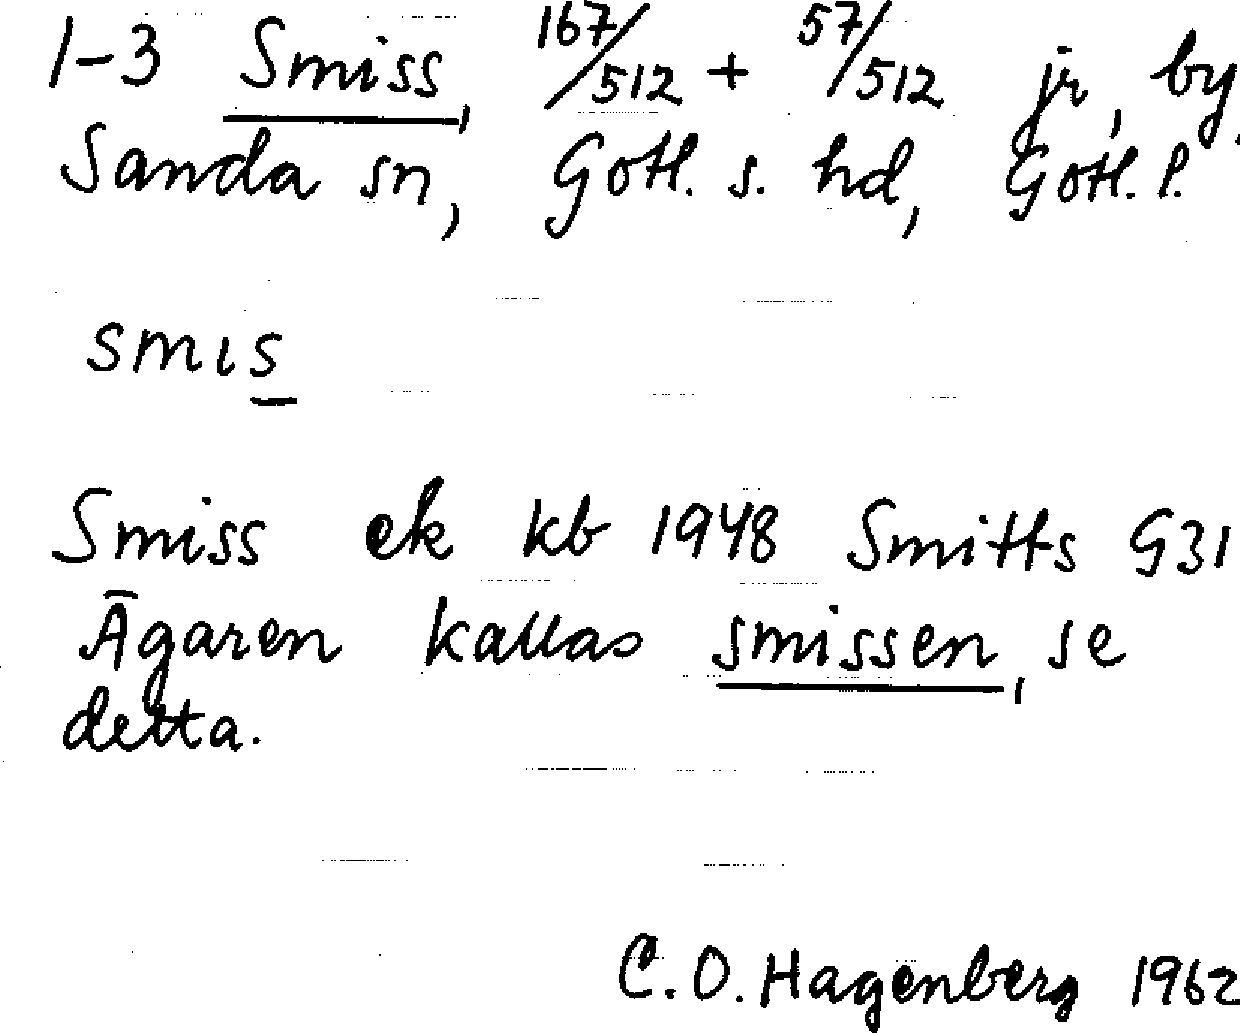 1-3 Smiss, 167/512 + 57/512 jr, by,
Sanda sn, Gotl. s. hd, Gotl. l.
smıs
Smiss ek kb 1948 Smitts G31
Ägaren kallas smissen, se
detta.
C.O. Hagenberg 1962